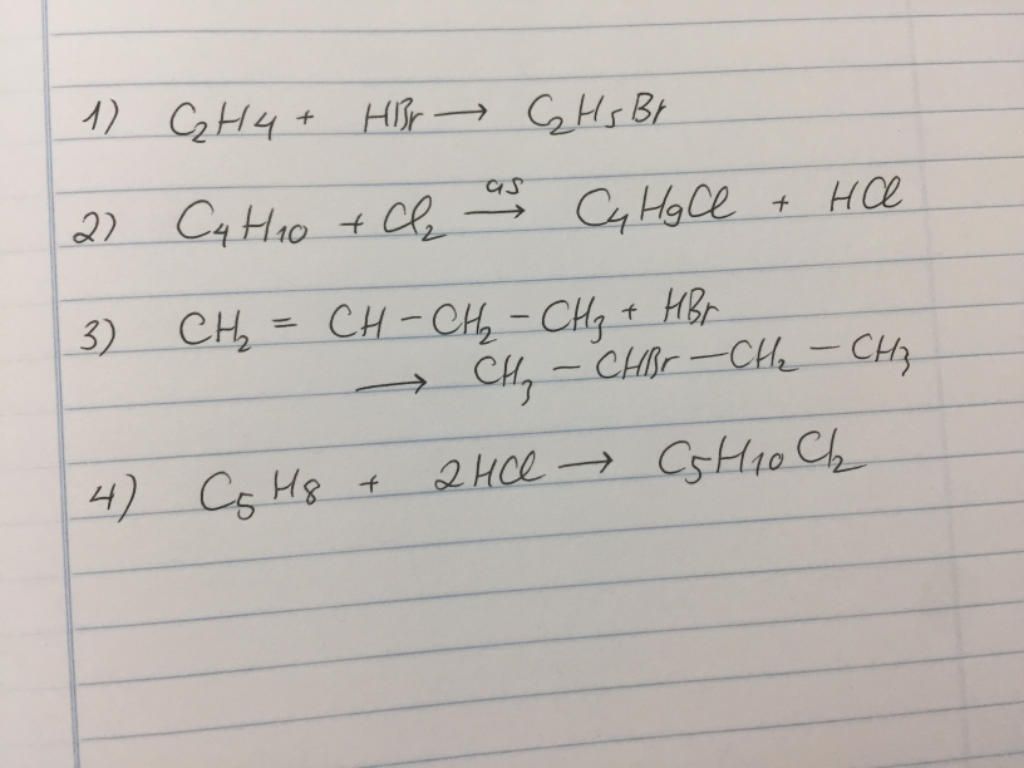 1) C2H4 + HBr → C2H5Br
2) C4H10 + Cl2 as→ C4H9Cl + HCl
3) CH2 = CH - CH2 - CH3 + HBr
→ CH3 - CHBr - CH2 - CH3
4) C5H8 + 2HCl → C5H10Cl2